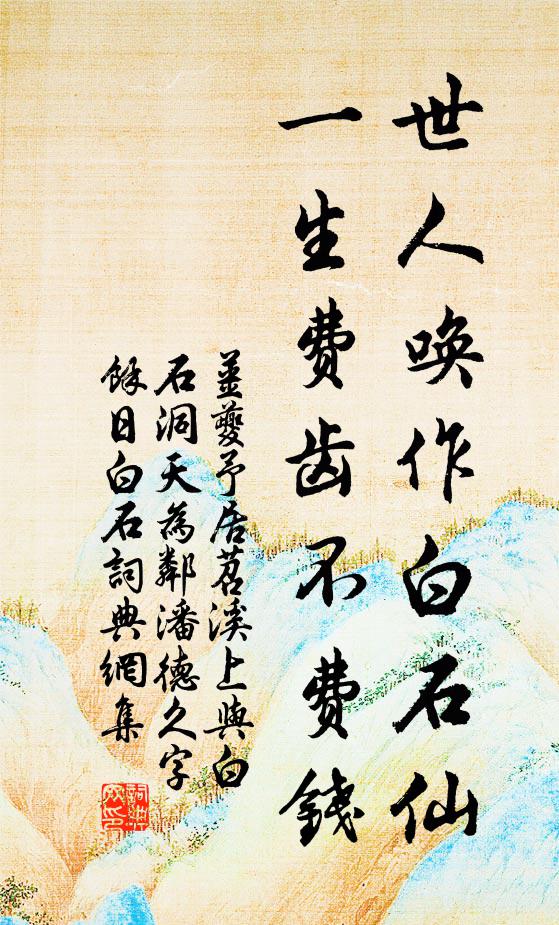 世人唤作白石仙
一生费齿不费錢
姜夔予居苕溪上與白
石洞天為鄰潘德久字
餘曰白石詞典網集